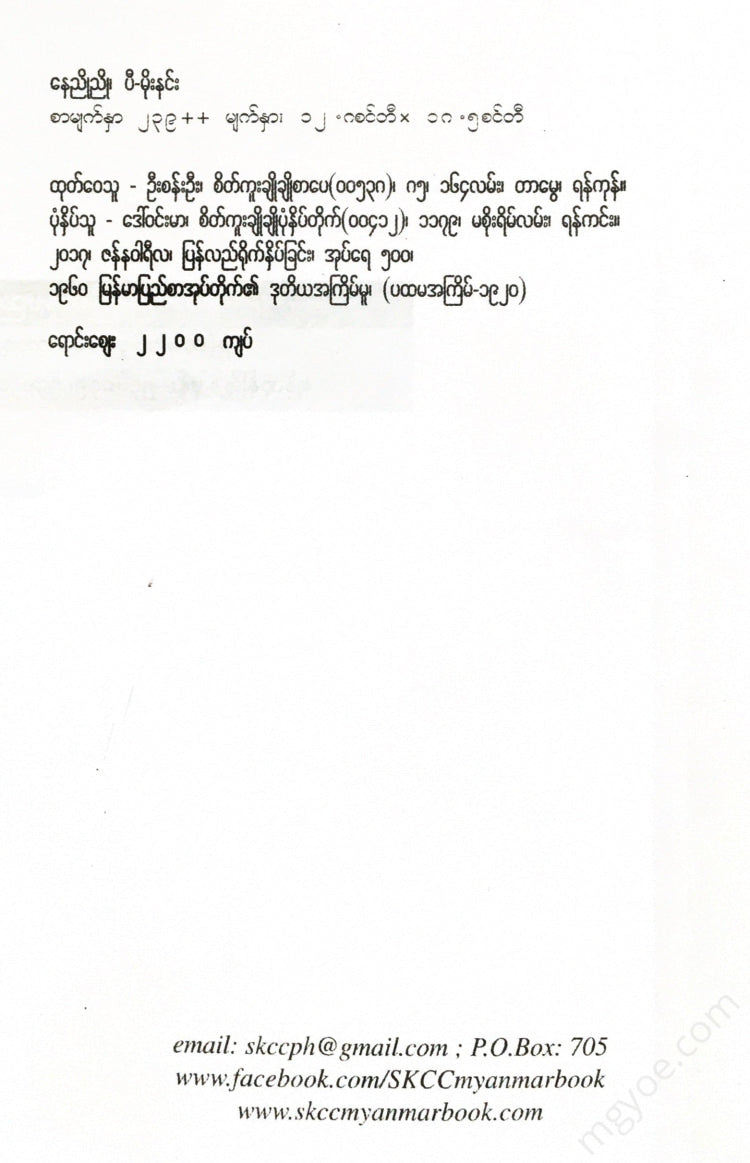 နေညိုညို၊ ပီ-မိုးနင်း
စာမျက်နှာ ၂၃၉++ မျက်နှာ၊ ၁၂.၈စင်တီ× ၁၈.၅စင်တီ
ထုတ်ဝေသူ - ဦးစန်းဦး၊ စိတ်ကူးချိုချိုစာပေ(၀၀၅၃၈)၊ ၈၅၊ ၁၆၄လမ်း၊ တာမွေ၊ ရန်ကုန်။
ပုံနှိပ်သူ - ဒေါ်ဝင်းမာ၊ စိတ်ကူးချိုချိုပုံနှိပ်တိုက်(၀၀၄၁၂)၊ ၁၁၇၉၊ မစိုးရိမ်လမ်း၊ ရန်ကင်း။
၂၀၁၇၊ ဇန်နဝါရီလ၊ ပြန်လည်ရိုက်နှိပ်ခြင်း၊ အုပ်ရေ ၅၀၀၊
၁၉၆၀ မြန်မာပြည်စာအုပ်တိုက်၏ ဒုတိယအကြိမ်မူ၊ (ပထမအကြိမ်-၁၉၂၀)
ရောင်းဈေး ၂၂၀၀ ကျပ်
email: skccph@gmail.com ; P.O.Box: 705
www.facebook.com/SKCCmyanmarbook
www.skccmyanmarbook.com
mgyoe.com